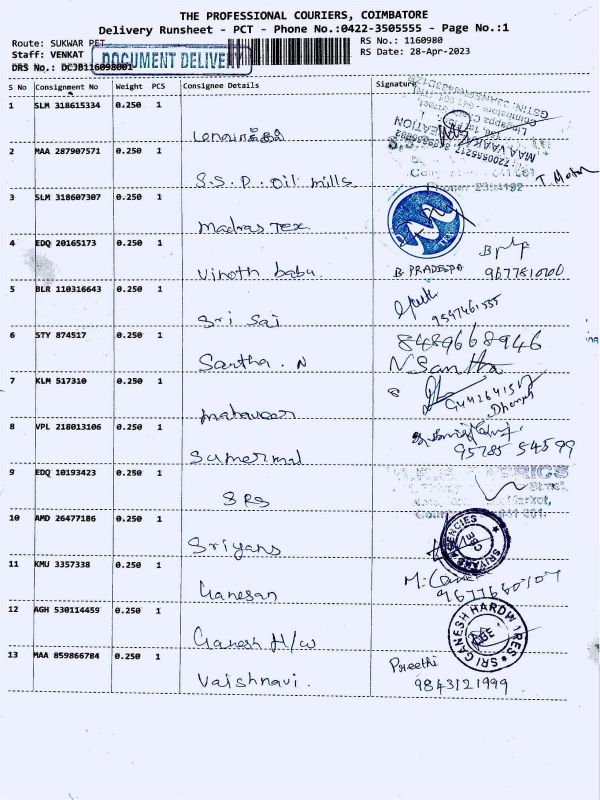 THE PROFESSIONAL COURIERS, COIMBATORE
Delivery Runsheet - PCT - Phone No.:0422-3505555 - Page No.:1
Route: SUKWAR PET
RS No.: 1160980
Staff: VENKAT
RS Date: 28-Apr-2023
DOCUMENT DELIVERY
DRS No.: DCJB116098001
S No Consignment No Weight PCS Consignee Details Signature
1 SLM 318615334 0.250 1
2 MAA 287907571 0.250 1
S.S.D. Oil mills
3 SLM 318607307 0.250 1
Madras Tex
4 EDQ 20165173 0.250 1
Vinoth babu
B. PRADEEPA
5 BLR 110316643 0.250 1
Sri Sai
6 STY 874517 0.250 1
8489668946
Santha. N
N Santha
7 KLM 517310 0.250 1
Mahaveer
8 VPL 218013106 0.250 1
Sumermal
95785 54599
9 EDQ 10193423 0.250 1
SRS
10 AMD 26477186 0.250 1
Sriyans
SRIYANS AGENCIES
11 KMU 3357338 0.250 1
Ganesan
12 AGH 530114459 0.250 1
Ganesh H/W
SRI GANESH HARDWARES
13 MAA 859866784 0.250 1
Vaishnavi.
Preethi
9843121999